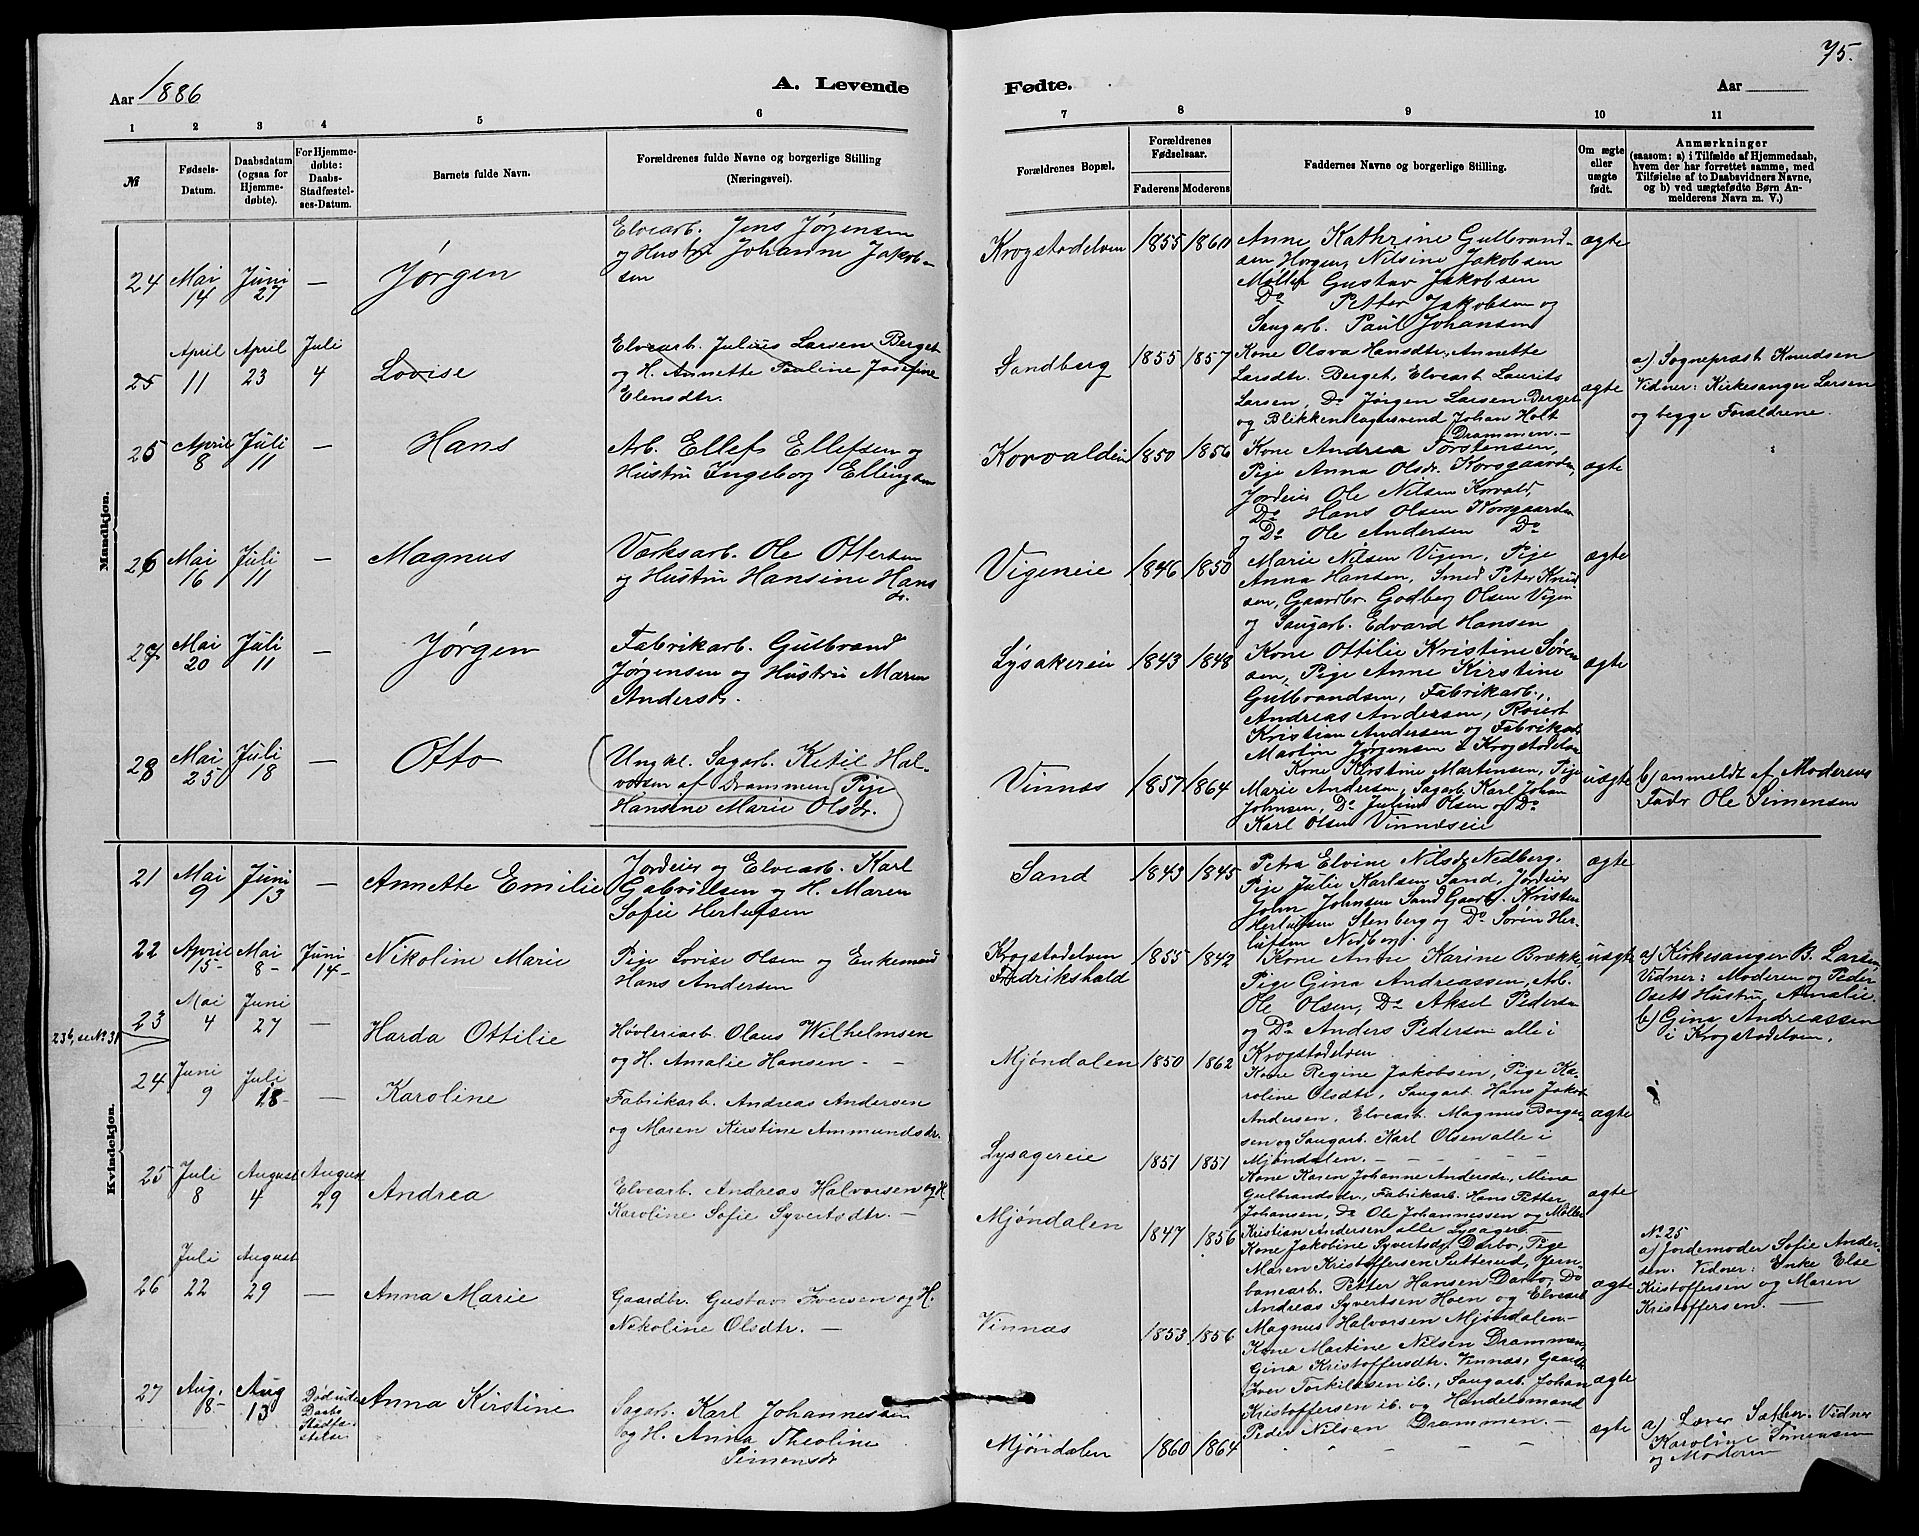 75.
Aar 1886
A. Levende
Fødte.
Aar
1 2 3 4 5 6 7 8 9 10 11
№
Fødsels-Datum.
Daabsdatum (ogsaa for Hjemmedøbte).
For Hjemmedøbte: Daabs-Stadfæstelses-Datum.
Barnets fulde Navn.
Forældrenes fulde Navne og borgerlige Stilling (Næringsvei).
Forældrenes Bopæl.
Forældrenes Fødselsaar.
Faderens Moderens
Faddernes Navne og borgerlige Stilling.
Om ægte eller uægte født.
Anmærkninger (saasom: a) i Tilfælde af Hjemmedaab, hvem der har forrettet samme, med Tilføielse af to Daabsvidners Navne, og b) ved uægtefødte Børn Anmelderens Navn m. V.)
Mandkjøn.
24 Mai 14 Juni 27 — Jørgen
Elvearb. Jens Jørgensen
og Hustru Johanne Jakob-
sen
Krogstadelven 1855 1860
Anne Kathrine Gulbrand-
sen Horgen, Nilsine Jakobsen
Møller Gustav Jakobsen
Do Petter Jakobsen og
Saugarb. Paul Johansen
ægte
25 April 11 April 23 Juli 4 Lovise
Elvearb. Julius Larsen Berget
og H. Annette Pauline Josefine
Elensdtr.
Sandberg 1855 1857
Kone Olava Hansdtr, Annette
Larsdtr. Berget, Elvearb. Laurits
Larsen, Do Jørgen Larsen Berget
og Blikkenslagersvend Johan Holt
Drammen.—
ægte
a) Sognepræst Knudsen
Vidner: Kirkesanger Larsen
og begge Forældrene.
25 April 8 Juli 11 — Hans
Arb. Ellef Ellefsen og
Hustru Ingeborg Ellingsen
Korvalden 1850 1856
Kone Andrea Torstensen,
Pige Anna Olsdr. Korsgaarden,
Jordeier Ole Nilsen Korvald,
Do Hans Olsen Korsgaarden
og Do Ole Andersen Do
ægte
26 Mai 16 Juli 11 — Magnus
Værksarb. Ole Ottersen
og Hustru Hansine Hans
dr.
Vigeneie 1846 1850
Marie Nilsen Vigen, Pige
Anna Hansen, Smed Peter Knud
sen, Gaardbr. Godberg Olsen Vigen
og Saugarb. Edvard Hansen
ægte
27 Mai 20 Juli 11 — Jørgen
Fabrikarb. Gulbrand
Jørgensen og Hustru Maren
Andersdr.
Lysakereie 1843 1848
Kone Ottilie Kristine Søren
sen, Pige Anne Kirstine
Gulbrandsen, Fabrikarb.,
Andreas Andersen,
Kristian Andersen og Fabrikarb
Martin Jørgensen Krogstadelven
ægte
28 Mai 25 Juli 18 — Otto
Ungkl. Sagarb. Ketil Hal-
vorsen af Drammen Pige
Hansine Marie Olsdr.
Vinnæs 1857 1864
Kone Kirstine Martinsen, Pige
Marie Andersen, Sagarb. Karl Johan
Johnsen, Do Julius Olsen og Do
Karl Olsen Vinnæseie
uægte
b) anmeldt af Moderens
Fader Ole Simensen
Kvindekjøn.
21 Mai 9 Juni 13 — Annette Emilie
Jordeier og Elvearb. Karl
Gabrielsen og H. Maren
Sofie Herlufsen
Sand 1843 1845
Petra Elvine Nilsdr Nedberg,
Pige Julie Karlsen Sand, Jordeier
John Johnsen Sand Gaarb. Kristen
Herlufsen Stenberg og Do Søren Her-
lufsen Nedberg.
ægte
22 April 15- Mai 8- Juni 14- Nikoline Marie
Pige Lovise Olsen og Enkemand
Hans Andersen
Krogstadelven
Fredrikshald 1855 1842
Kone Anne Karine Brække,
Pige Gina Andreassen, Arb.
Ole Olsen, Do Aksel Pedersen
og Do Anders Pedersen alle i
Krogstadelven
uægte
a) Kirkesanger B. Larsen
Vidner: Moderen og Peder
Osets Hustru Amalie.
b) Gina Andreassen
i Krogstadelven.
23b, se No 31
23 Mai 4 Juni 27 — Harda Ottilie
Høvleriarb. Olaus Wilhelmsen
og H. Amalie Hansen — —
Mjøndalen 1850 1862
Kone Regine Jakobsen, Pige Ka-
roline Olsdtr, Saugarb. Hans Jakob
Andersen, Elvearb. Magnus Borger-
sen og Saugarb. Karl Olsen alle i
Mjøndalen. — — —
ægte
24 Juni 9 Juli 18 — Karoline
Fabrikarb. Andreas Andersen
og Maren Kirstine Ammundsdr.
Lysagereie 1851 1851
Kone Karen Johanne Andersdr, Mina
Gulbrandsdr, Fabrikarb. Hans Petter
Johansen, Do Ole Johannessen og Møller
Kristian Andersen alle Lysager —
ægte
25 Juli 8 August 4 August 29 Andrea
Elvearb. Andreas Halvorsen og H
Karoline Sofie Syvertsdtr. —
Mjøndalen 1847 1856
Kone Jakobine Syvertsdr Darbo, Pige
Maren Kristoffersen Sutterud, Jern-
banearb. Petter Hansen Darbo, Do
Andreas Syvertsen Hoen og Elvearb
Magnus Halvorsen Mjøndalen.—
ægte
No 25
a) Jordemoder Sofie Ander-
sen. Vidner: Enke Else
Kristoffersen og Maren
Kristoffersen. —
26 Juli 22 August 29 — Anna Marie
Gaardbr. Gustav Iversen og H.
Nikoline Olsdtr. —
Vinnæs 1853 1856
Kone Martine Nilsen Drammen,
Gina Kristoffersdtr. Vinnæs, Gaardb
Iver Torkildsen ib., Saugarb. Johan
Kristoffersen ib. og Handelsmand
Peder Nilsen Drammen. —
ægte
27 Aug. 8- Aug 13 Død uden Daabs Stadfæstelse Anna Kirstine
Sagarb. Karl Johannessen
og H. Anna Theoline
Simensdr
Mjøndalen 1860 1864
" " " "
ægte
a) Lærer Sæther. Vidner
Karoline Simensen
og Moderen